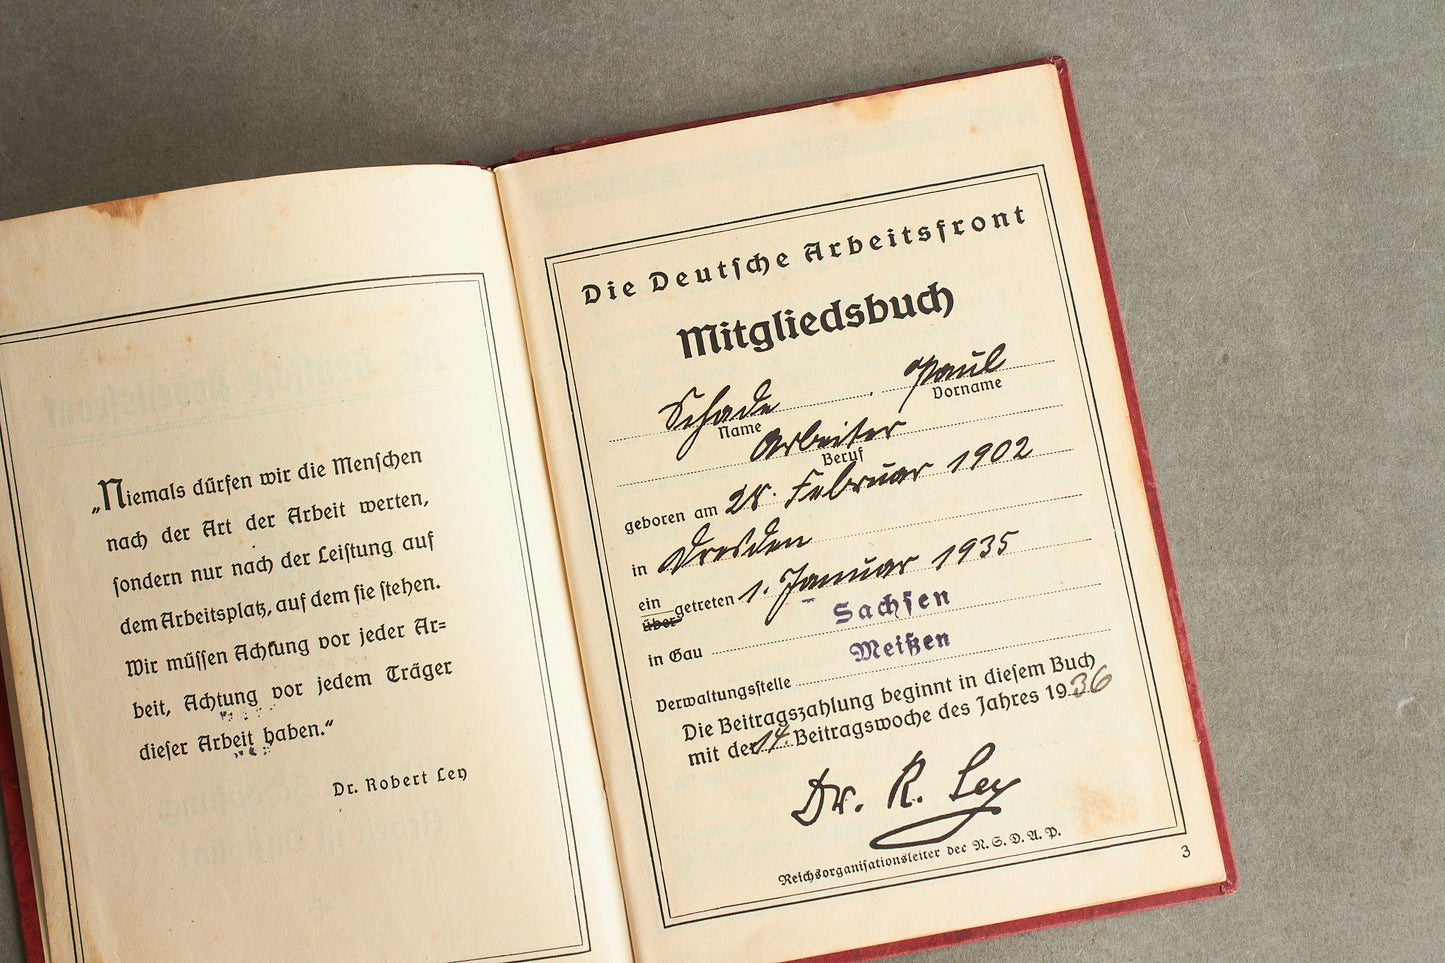 „Niemals dürfen wir die Menschen
nach der Art der Arbeit werten,
sondern nur nach der Leistung auf
dem Arbeitsplatz, auf dem sie stehen.
Wir müssen Achtung vor jeder Ar=
beit, Achtung vor jedem Träger
dieser Arbeit haben.“
Dr. Robert Ley
Die Deutsche Arbeitsfront
Mitgliedsbuch
Schade Paul
Name Vorname
Arbeiter
Beruf
geboren am 28. Februar 1902
in Dresden
ein
über getreten 1. Januar 1935
in Gau Sachsen
Verwaltungsstelle Meißen
Die Beitragszahlung beginnt in diesem Buch
mit der 14. Beitragswoche des Jahres 1936
Dr. R. Ley
Reichsorganisationsleiter der N.S.D.A.P.
3